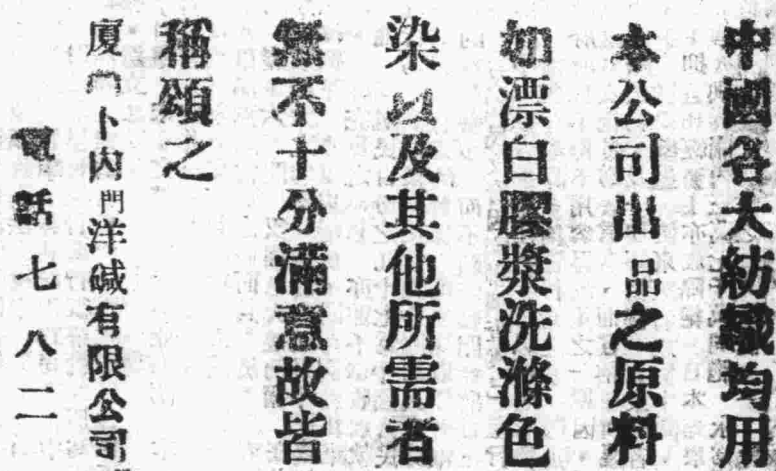 中國各大紡織均用
本公司出品之原料
如漂白膠漿洗滌色
染以及其他所需者
無不十分滿意故皆
稱頌之
廈門卜內門洋碱有限公司
電話七八二